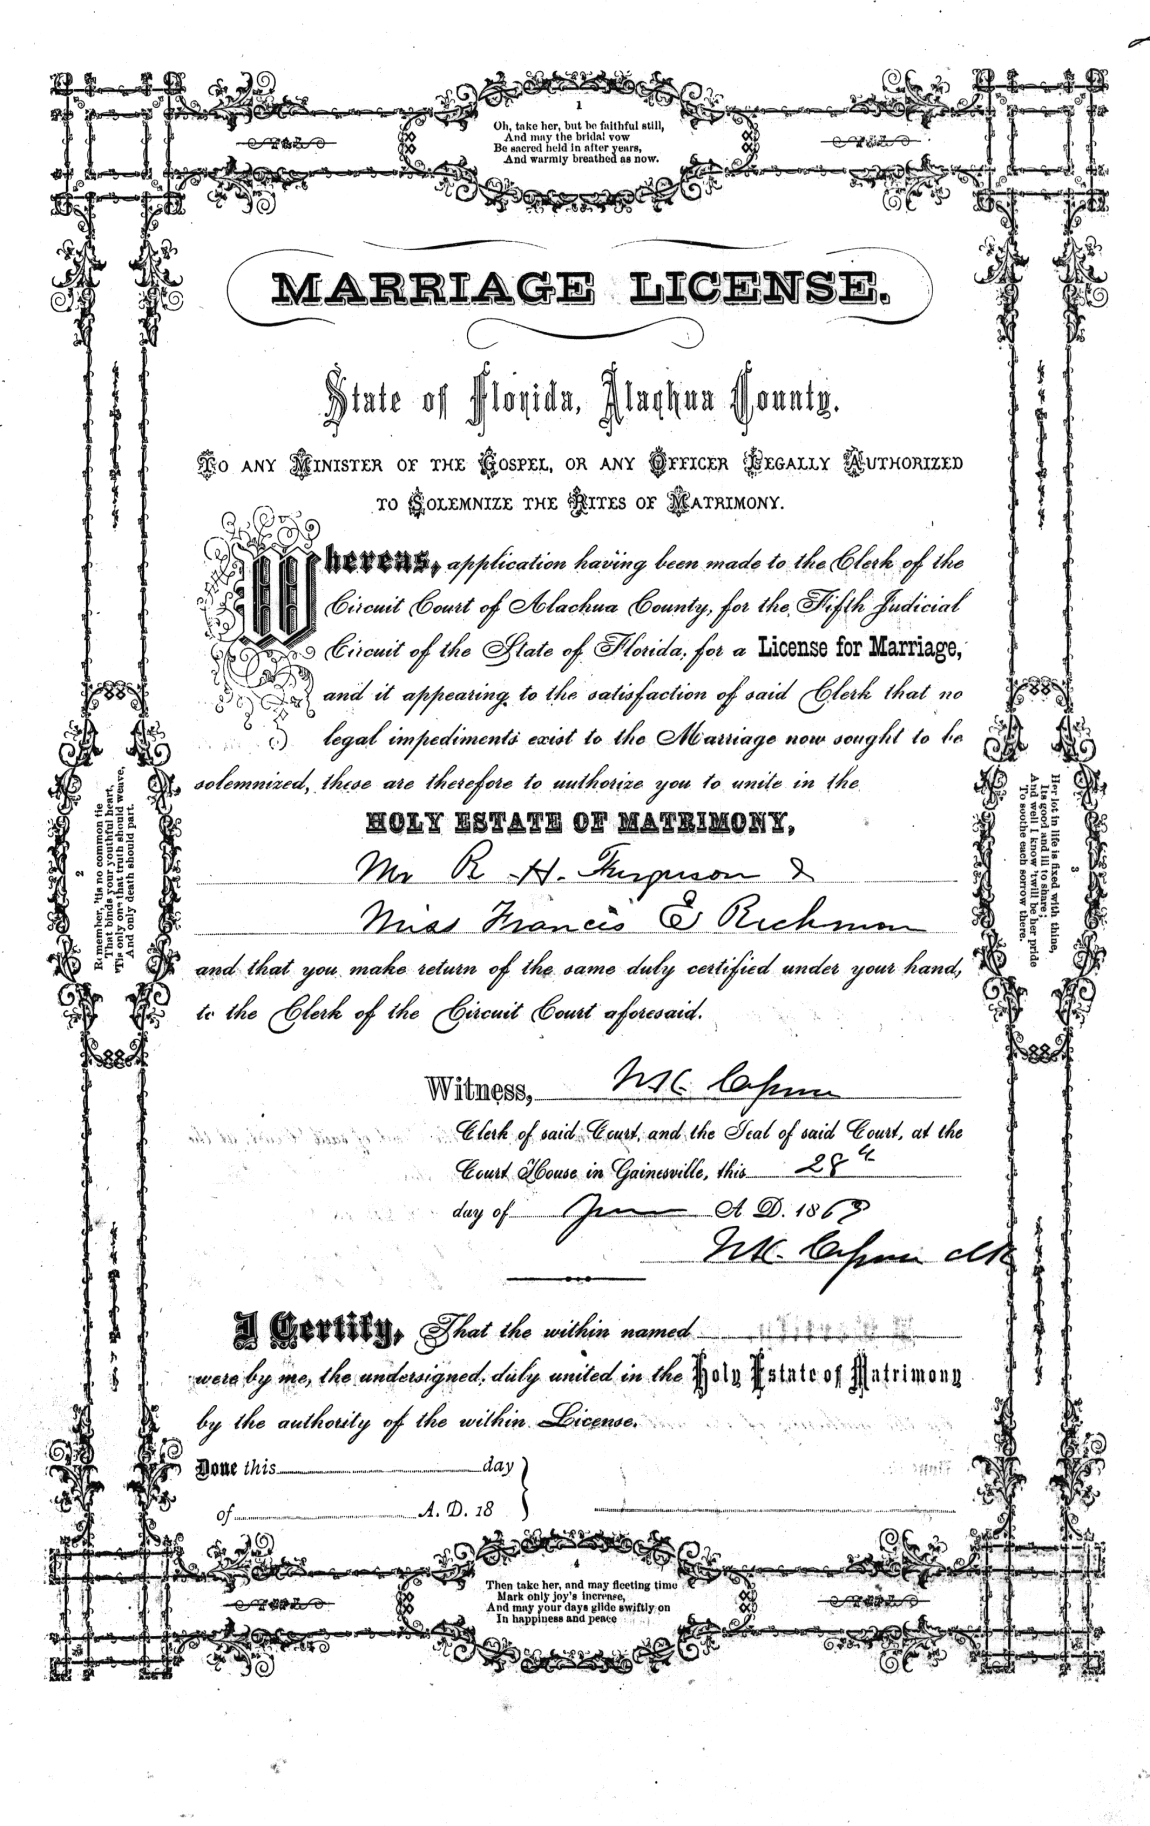 1
Oh, take her, but be faithful still,
And may the bridal vow
Be sacred held in after years,
And warmly breathed as now.
MARRIAGE LICENSE.
State of Florida, Alachua County.
TO ANY MINISTER OF THE GOSPEL, OR ANY OFFICER LEGALLY AUTHORIZED
TO SOLEMNIZE THE RITES OF MATRIMONY.
Whereas, application having been made to the Clerk of the
Circuit Court of Alachua County, for the Fifth Judicial
Circuit of the State of Florida, for a License for Marriage,
and it appearing to the satisfaction of said Clerk that no
legal impediments exist to the Marriage now sought to be
solemnized, these are therefore to authorize you to unite in the
HOLY ESTATE OF MATRIMONY,
Mr R. H. Ferguson &
Miss Francis E Richmon
and that you make return of the same duly certified under your hand,
to the Clerk of the Circuit Court aforesaid.
Witness,
Clerk of said Court, and the Seal of said Court, at the
Court House in Gainesville, this 28
day of June A. D. 1869
Clk
I Certify, That the within named
were by me, the undersigned, duly united in the Holy Estate of Matrimony
by the authority of the within License.
Done this day
of A. D. 18
2
Remember, 'tis no common tie
That binds your youthful heart,
'Tis only one that truth should weave,
And only death should part.
3
Her lot in life is fixed with thine,
Its good and ill to share;
And well I know 'twill be her pride
To soothe each sorrow there.
4
Then take her, and may fleeting time
Mark only joy's increase,
And may your days glide swiftly on
In happiness and peace